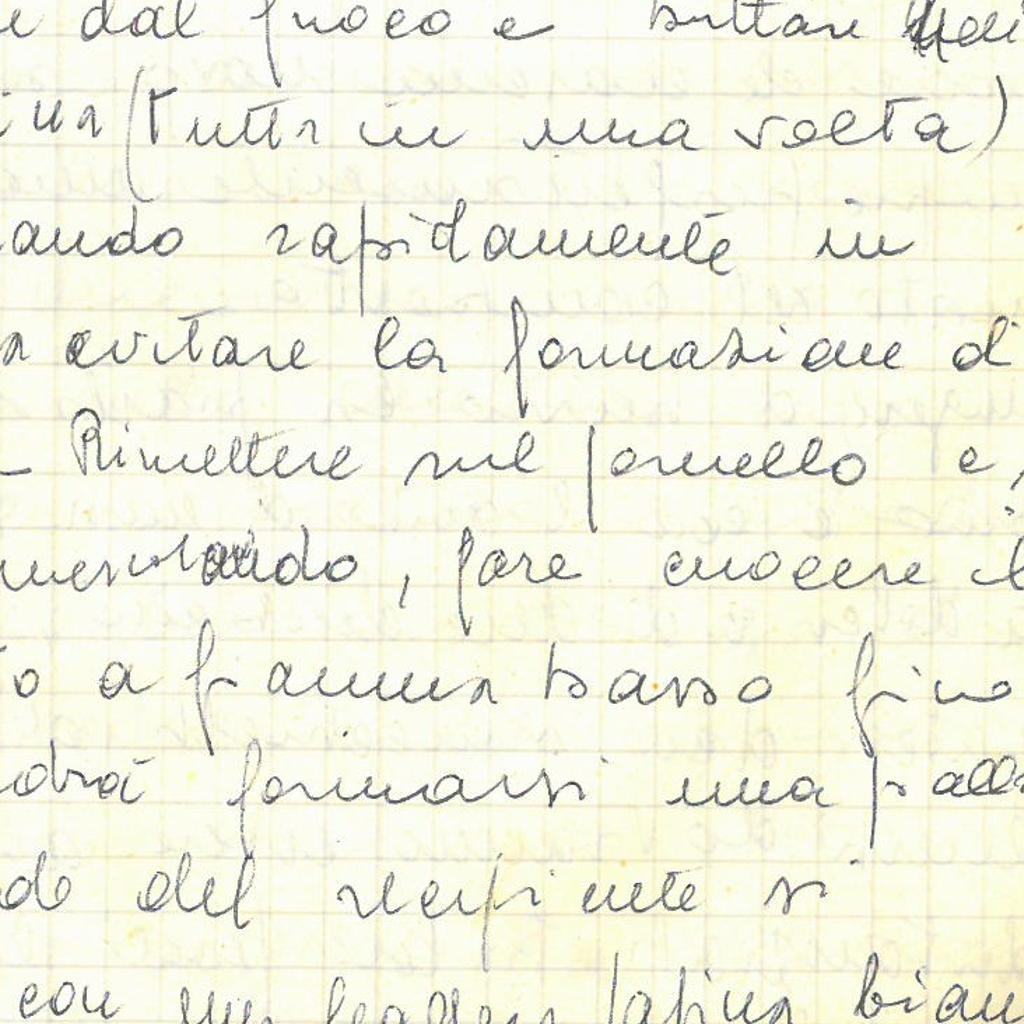 e dal fuoco e buttare
(tutta in una volta)
ando rapidamente in
evitare la formazione di
- Rimettere sul fornello e,
mescolando, fare cuocere il
to a fiamma bassa fino
drà formarsi una palla
do del recipiente si
con un leggera patina bian